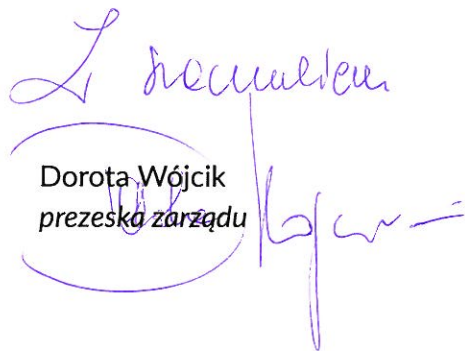 Z szacunkiem
Dorota Wójcik
prezeska zarządu